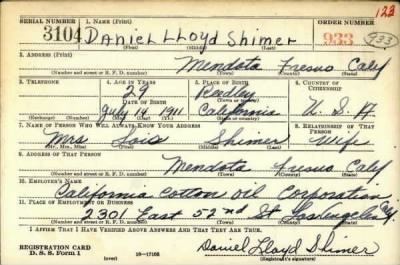 123
SERIAL NUMBER 1. Name (Print) ORDER NUMBER
3104 Daniel Lloyd Shimer 933 933
(First) (Middle) (Last)
2. Address (Print)
Mendota Fresno Caly
(Number and street or R. F. D. number) (Town) (County) (State)
3. Telephone 4. Age in Years 5. Place of Birth 6. Country of Citizenship
29 Reedley
Date of Birth (Town or county)
July 14 1911 California U. S. A.
(Exchange) (Number) (Mo.) (Day) (Yr.) (State or country)
7. Name of Person Who Will Always Know Your Address 8. Relationship of That Person
Mrs Lois Shimer Wife
(Mr., Mrs., Miss) (First) (Middle) (Last)
9. Address of That Person
Mendota Fresno Caly
(Number and street or R. F. D. number) (Town) (County) (State)
10. Employer's Name
California Cotton Oil Corporation
11. Place of Employment or Business
2301 East 52nd St Los Angeles
(Number and street or R. F. D. number) (Town) (County) (State)
I Affirm That I Have Verified Above Answers and That They Are True.
REGISTRATION CARD
D. S. S. Form 1 (over) 16-17105 Daniel Lloyd Shimer
(Registrant's signature)